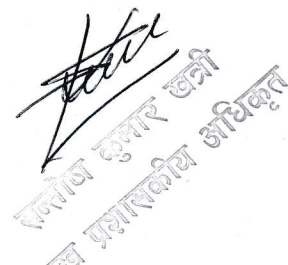 सन्तोष कुमार खत्री
प्रशासकीय अधिकृत